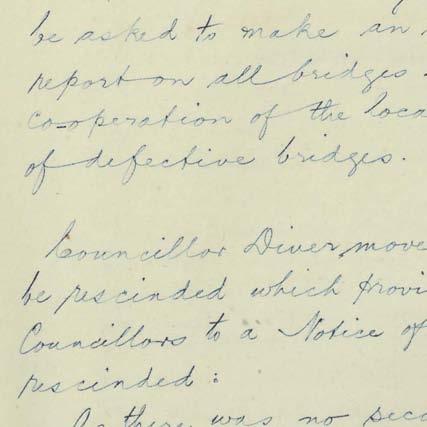 be asked to make an
report on all bridges
co-operation of the loca
of defective bridges.
Councillor Diver move
be rescinded which provi
Councillors to a Notice of
rescinded:
As there was no seco